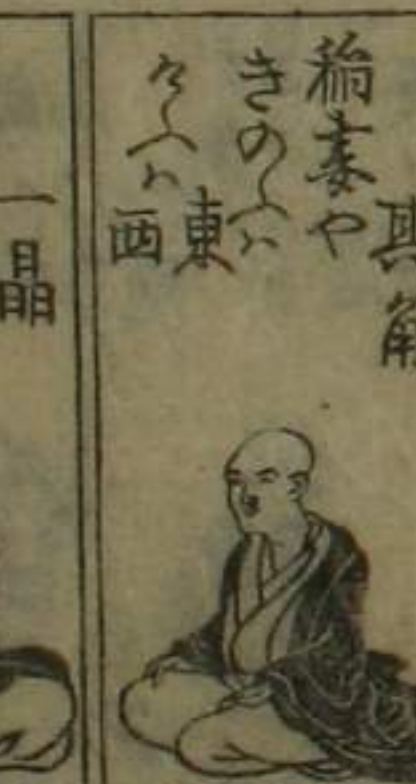 其
稲妻や
きのふハ
東
けふハ
西
一晶